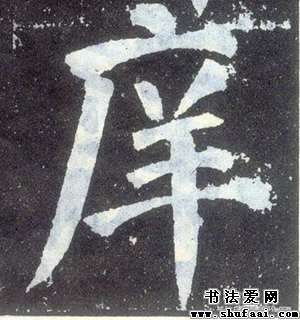 庠
书法爱网
www.shufaai.com